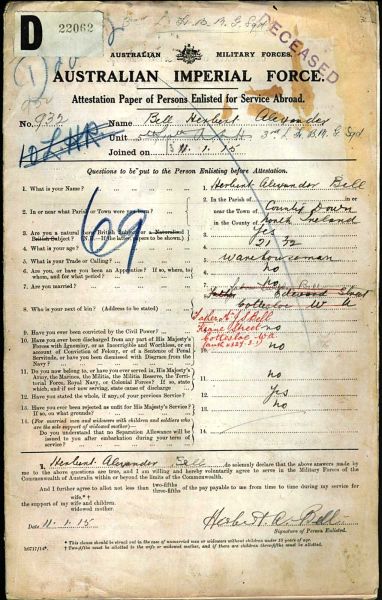 D
22062
DECEASED
AUSTRALIAN MILITARY FORCES.
AUSTRALIAN IMPERIAL FORCE.
Attestation Paper of Persons Enlisted for Service Abroad.
No. 932 Name Bell Herbert Alexander
Unit
Joined on 11.1.15
Questions to be put to the Person Enlisting before Attestation.
1. What is your Name? Herbert Alexander Bell
2. In or near what Parish or Town were you born? In the Parish of
or near the Town of County Down
in the County of North Ireland
3. Are you a natural born British Subject or a Naturalized British Subject? (If the latter, papers to be shown). Yes
4. What is your age? 21
5. What is your Trade or Calling? Warehouseman
6. Are you, or have you been an Apprentice? If so, where, to whom, and for what period? no
7. Are you married? no
8. Who is your next of kin? (Address to be stated)
Cottesloe W A
Bell
Cottesloe WA
9. Have you ever been convicted by the Civil Power? no
10. Have you ever been discharged from any part of His Majesty's Forces with Ignominy, or as Incorrigible and Worthless, or on account of Conviction of Felony, or of a Sentence of Penal Servitude, or have you been dismissed with Disgrace from the Navy? no
11. Do you now belong to, or have you ever served in, His Majesty's Army, the Marines, the Militia, the Militia Reserve, the Territorial Force, Royal Navy, or Colonial Forces? If so, state which, and if not now serving, state cause of discharge no
12. Have you stated the whole, if any, of your previous Service? Yes
13. Have you ever been rejected as unfit for His Majesty's Service? If so, on what grounds? no
14. (For married men and widowers with children and soldiers who are the sole support of widowed mother)—
Do you understand that no Separation Allowance will be issued to you after embarkation during your term of service?
I, Herbert Alexander Bell do solemnly declare that the above answers made by
me to the above questions are true, and I am willing and hereby voluntarily agree to serve in the Military Forces of the
Commonwealth of Australia within or beyond the limits of the Commonwealth.
And I further agree to allot not less than two-fifths three-fifths of the pay payable to me from time to time during my service for
the support of my wife and children
widowed mother
Date 11-1-15 Herbert A Bell
Signature of Person Enlisted.
* This clause should be struck out in the case of unmarried men or widowers without children under 18 years of age.
† Two-fifths must be allotted to the wife or widowed mother, and if there are children three-fifths must be allotted.